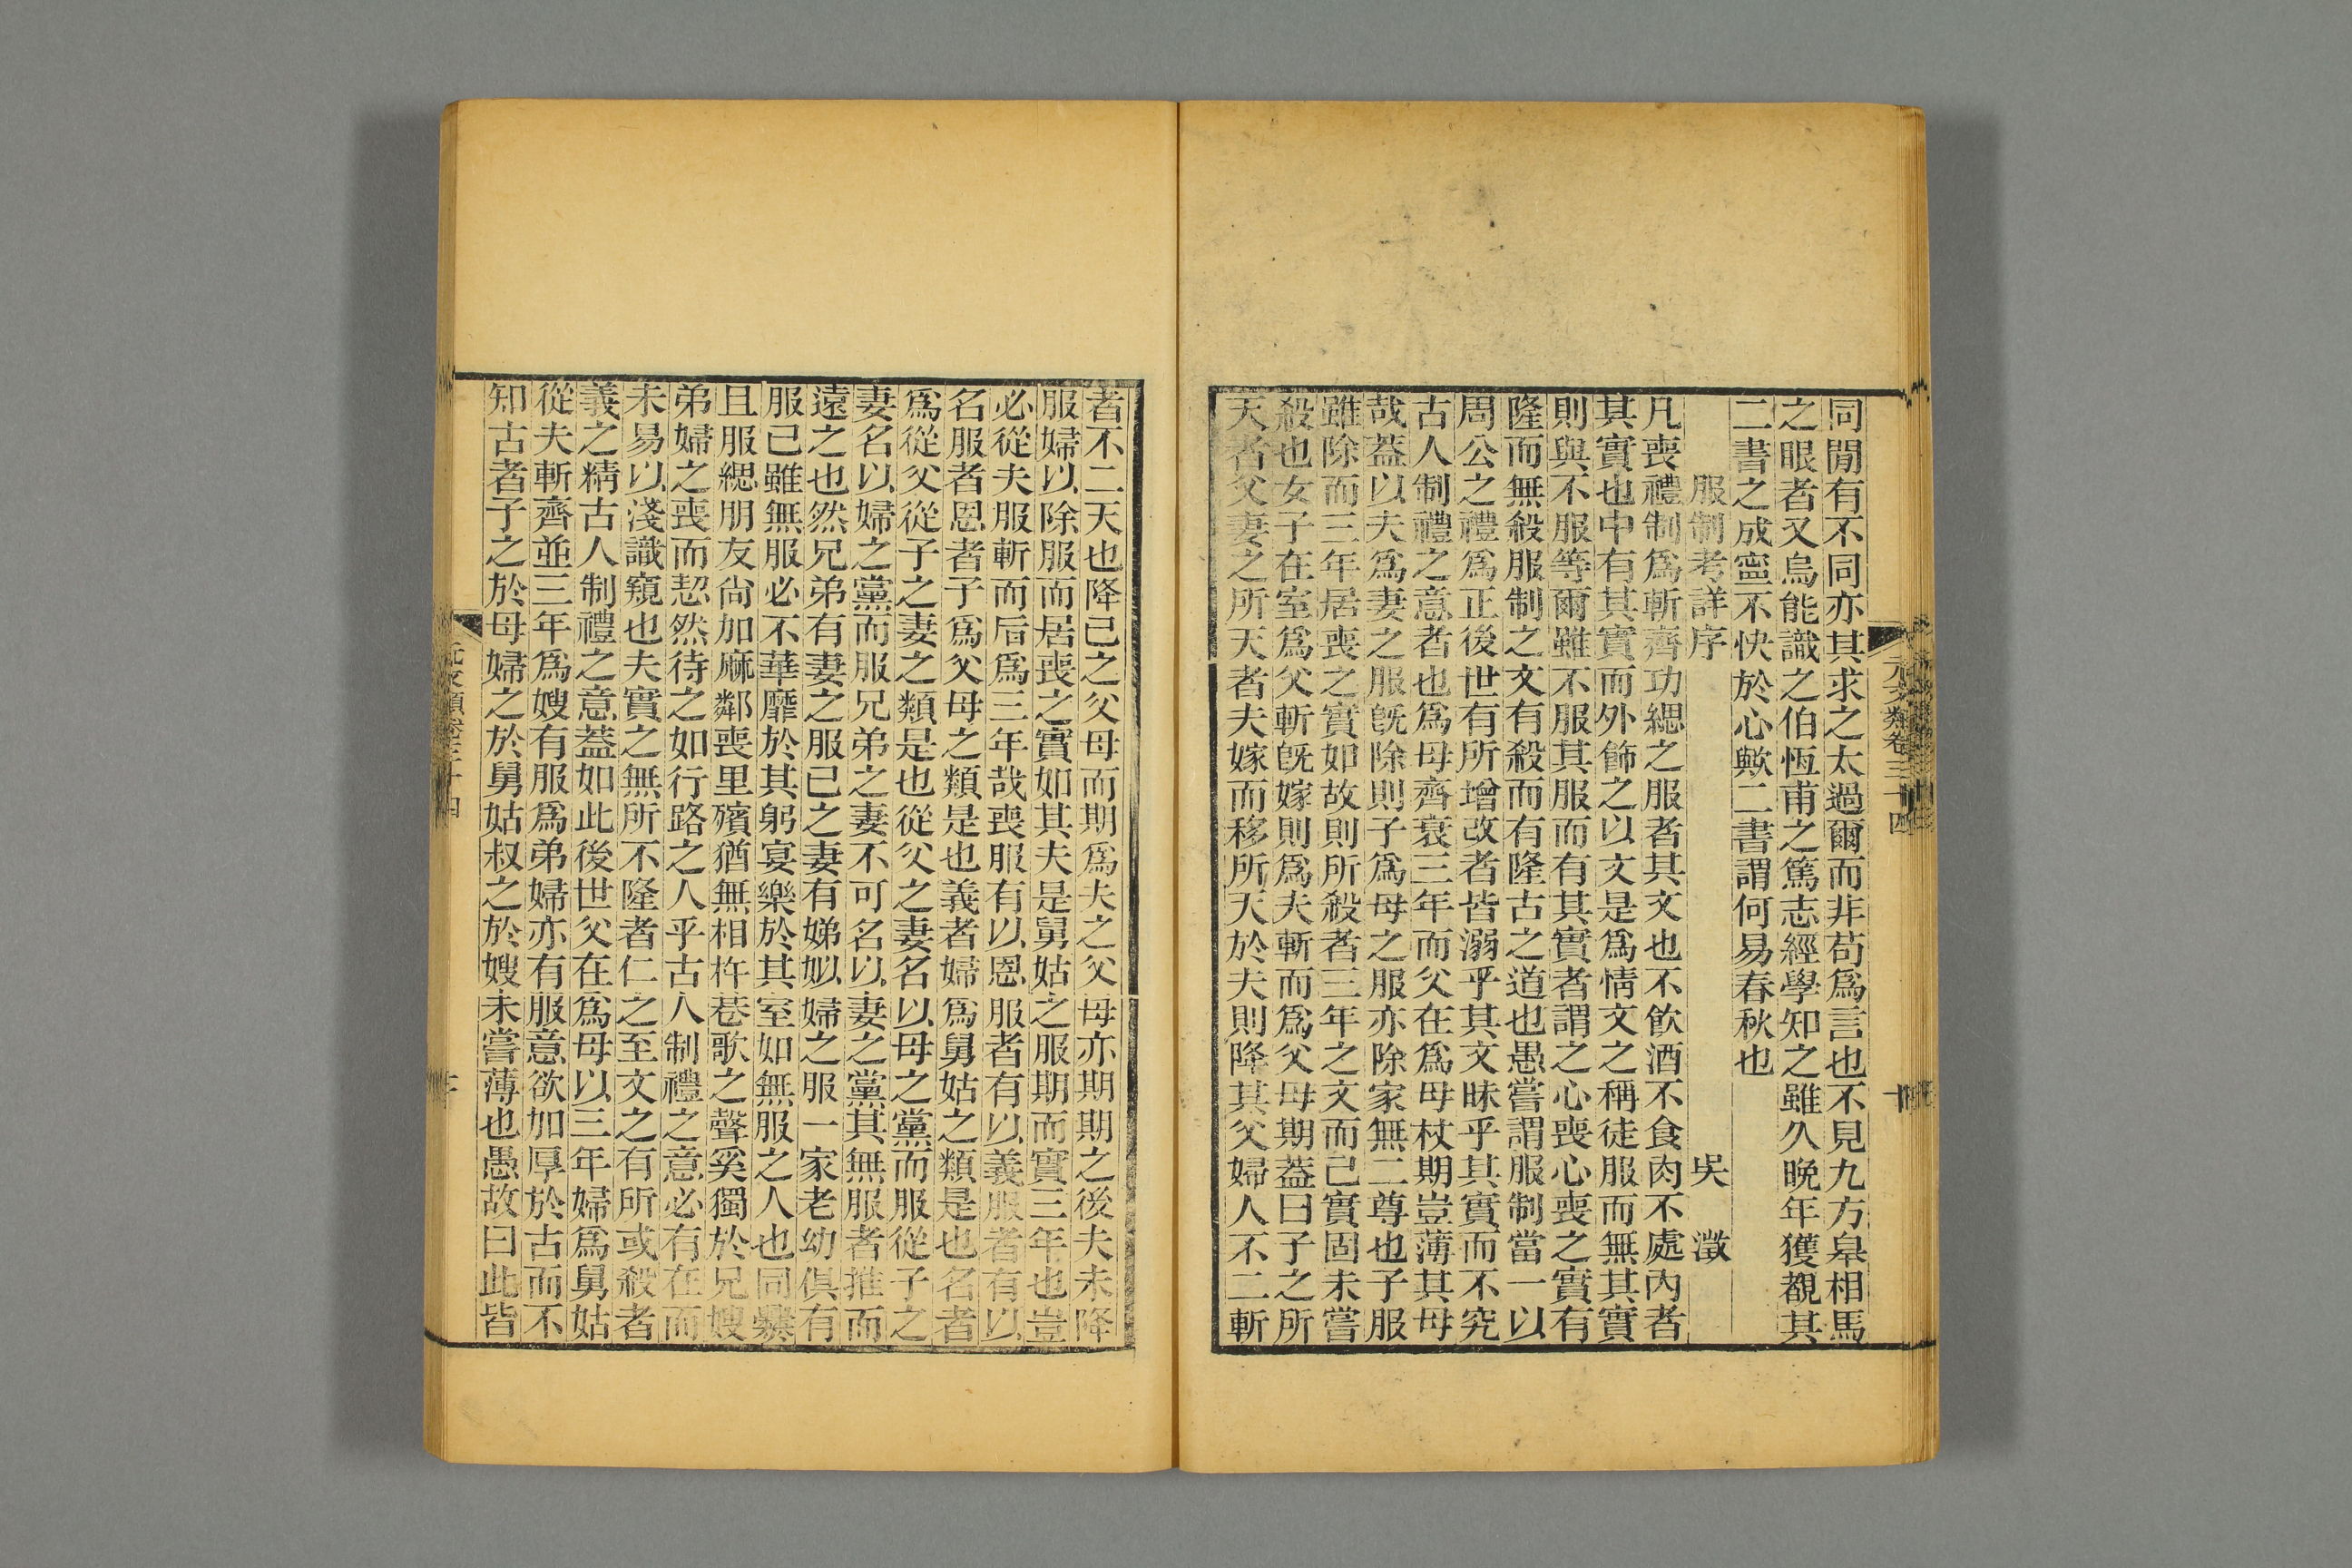 同閒有不同亦其求之太過爾而非苟爲言也不見九方臯相馬
之眼者又烏能識之伯恆甫之篤志經學知之雖久晚年獲覩其
二書之成寧不快於心歟二書謂何易春秋也
服制考詳序　吳　澂
凡喪禮制爲斬齊功緦之服者其文也不飮酒不食肉不處內者
其實也中有其實而外飾之以文是爲情文之稱徒服而無其實
則與不服等爾雖不服其服而有其實者謂之心喪心喪之實有
隆而無殺服制之文有殺而有隆古之道也愚嘗謂服制當一以
周公之禮爲正後世有所增改者皆溺乎其文昧乎其實而不究
古人制禮之意者也爲母齊衰三年而父在爲母杖期豈薄其母
哉蓋以夫爲妻之服旣除則子爲母之服亦除家無二尊也子服
雖除而三年居喪之實如故則所殺者三年之文而已實固未嘗
殺也女子在室爲父斬旣嫁則爲夫斬而爲父母期蓋曰子之所
天者父妻之所天者夫嫁而移所天於夫則降其父婦人不二斬
元文類卷三十四
者不二天也降己之父母而期爲夫之父母亦期期之後夫未降
服婦以除服而居喪之實如其夫是舅姑之服期而實三年也豈
必從夫服斬而后爲三年哉喪服有以恩服者有以義服者有以
名服者恩者子爲父母之類是也義者婦爲舅姑之類是也名者
爲從父從子之妻之類是也從父之妻名以母之黨而服從子之
妻名以婦之黨而服兄弟之妻不可名以妻之黨其無服者推而
遠之也然兄弟有妻之服己之妻有娣姒婦之服一家老幼俱有
服己雖無服必不華靡於其躬宴樂於其室如無服之人也同爨
且服緦朋友尙加麻鄰喪里殯猶無相杵巷歌之聲奚獨於兄嫂
弟婦之喪而恝然待之如行路之人乎古人制禮之意必有在而
未易以淺識窺也夫實之無所不隆者仁之至文之有所或殺者
義之精古人制禮之意蓋如此後世父在爲母以三年婦爲舅姑
從夫斬齊並三年爲嫂有服爲弟婦亦有服意欲加厚於古而不
知古者子之於母婦之於舅姑叔之於嫂未嘗薄也愚故曰此皆